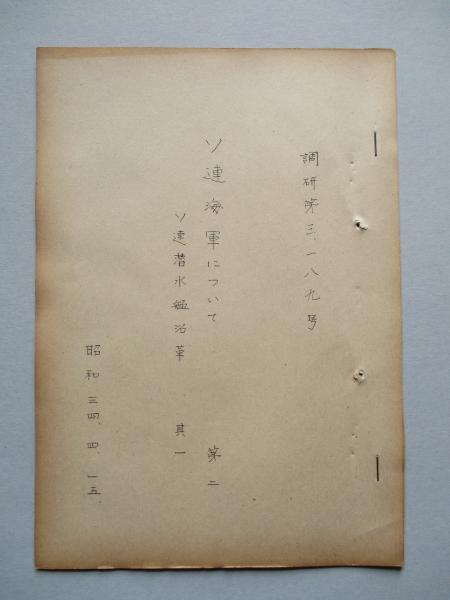 調研第三、一八九号
ソ連海軍について 第二
ソ連潜水艦沿革 其一
昭和三四、四、一五、